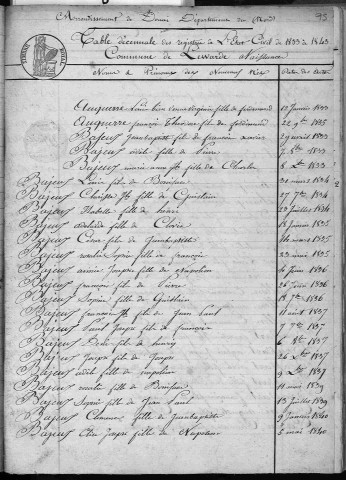 93
Arrondissement de Douai Département du Nord
Table décennale des registres de L'État Civil de 1833 à 1843
Commune de Lewarde Naissance
TIMBRE ROYAL
Noms & Prénoms des Nouveaux Nés Dates des Actes
Auguerre fille de ferdinand 12 janvier 1833
Auguerre françois fils de ferdinand 22 1835
Bajeux Jeanbaptiste fils de françois xavier 29 avril 1833
Bajeux fille de Pierre 7 1833
Bajeux marie fille de Charles 8 1833
Bajeux Louis fils de 20 mars 1834
Bajeux fils de Guislain 27 1834
Bajeux Isabelle fille de henri 22 juillet 1834
Bajeux adelaïde fille de 18 janvier 1835
Bajeux César fils de Jeanbaptiste 16 mars 1835
Bajeux rosalie Sophie fille de françois 23 mai 1835
Bajeux aimée Josèphe fille de Napoléon 4 juin 1836
Bajeux françois fils de Pierre 26 juin 1836
Bajeux Sophie fille de Guislain 18 1836
Bajeux françois fils de Jean Paul 11 août 1837
Bajeux Paul Joseph fils de françois 7 1837
Bajeux fils de henry 6 1837
Bajeux Joseph fils de Joseph 26 1837
Bajeux fille de napoléon 9 1837
Bajeux fille de Boniface 11 mars 1839
Bajeux Sophie fille de Jean Paul 13 juillet 1839
Bajeux Clémence fille de Jeanbaptiste 9 janvier 1840
Bajeux Josèphe fille de Napoléon 5 mai 1840